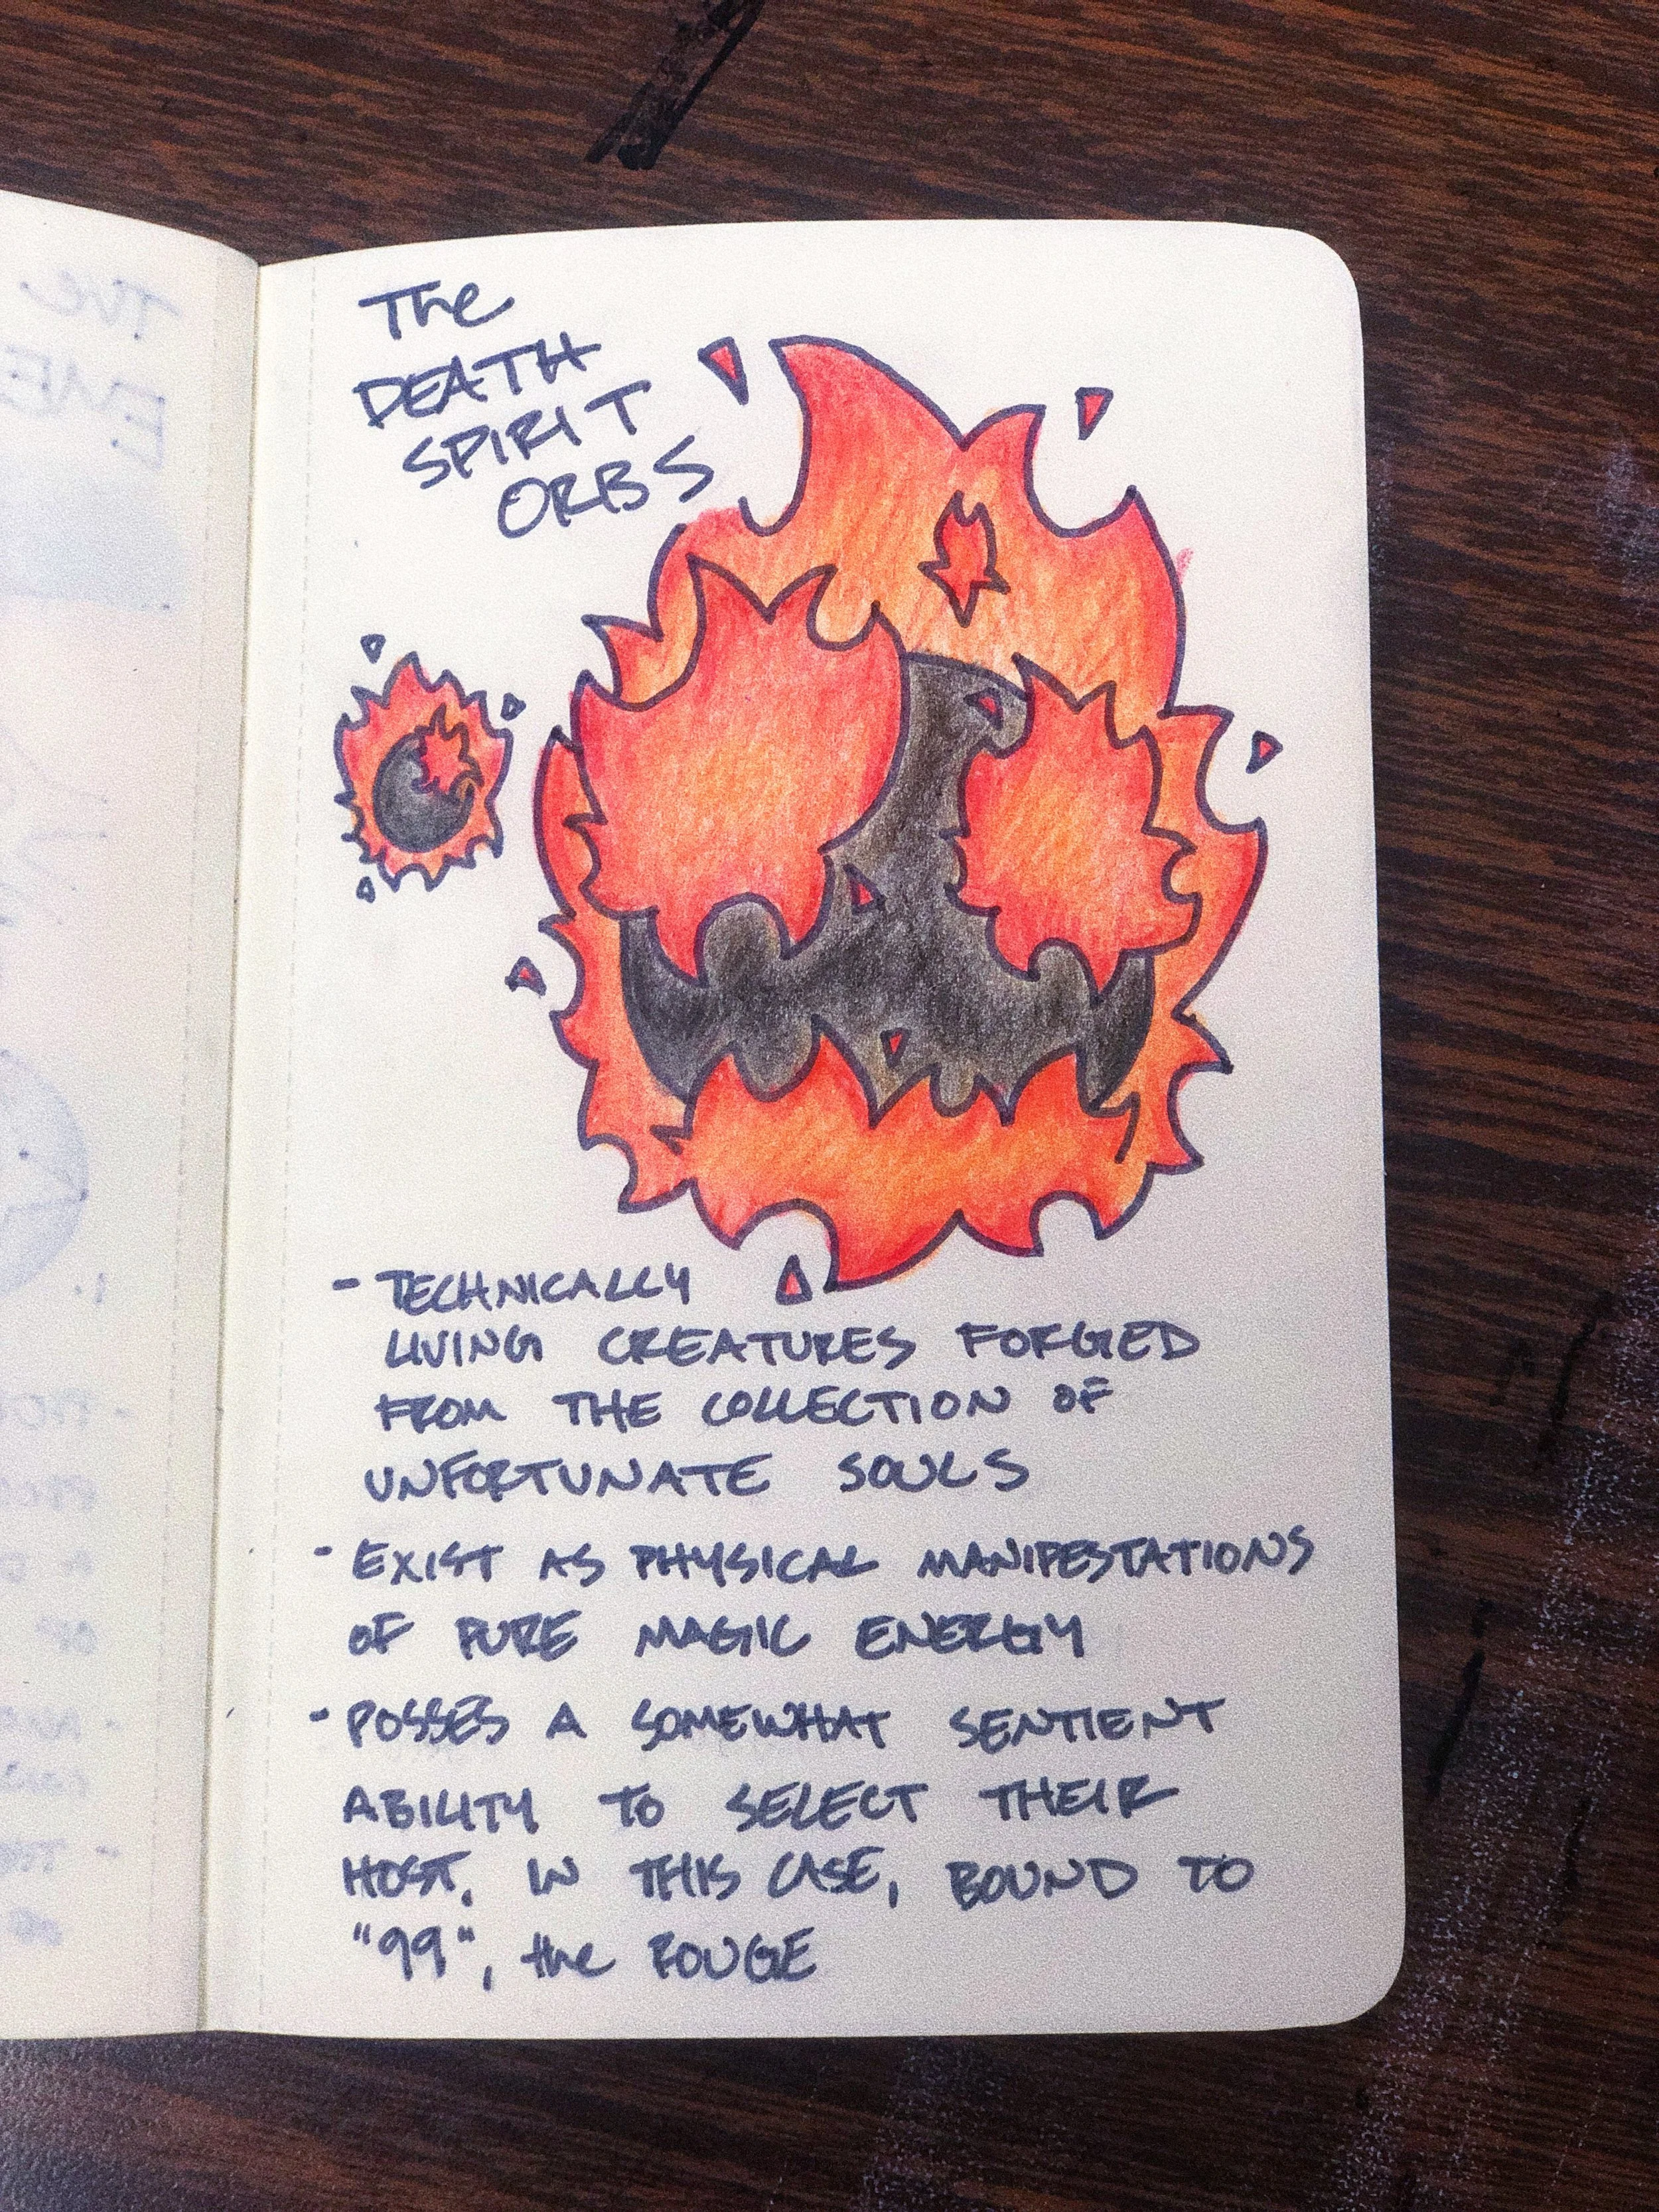 The
DEATH
SPIRIT
ORBS
- TECHNICALLY
LIVING CREATURES FORGED
FROM THE COLLECTION OF
UNFORTUNATE SOULS
- EXIST AS PHYSICAL MANIFESTATIONS
OF PURE MAGIC ENERGY
- POSSES A SOMEWHAT SENTIENT
ABILITY TO SELECT THEIR
HOST. IN THIS CASE, BOUND TO
"99", the ROUGE